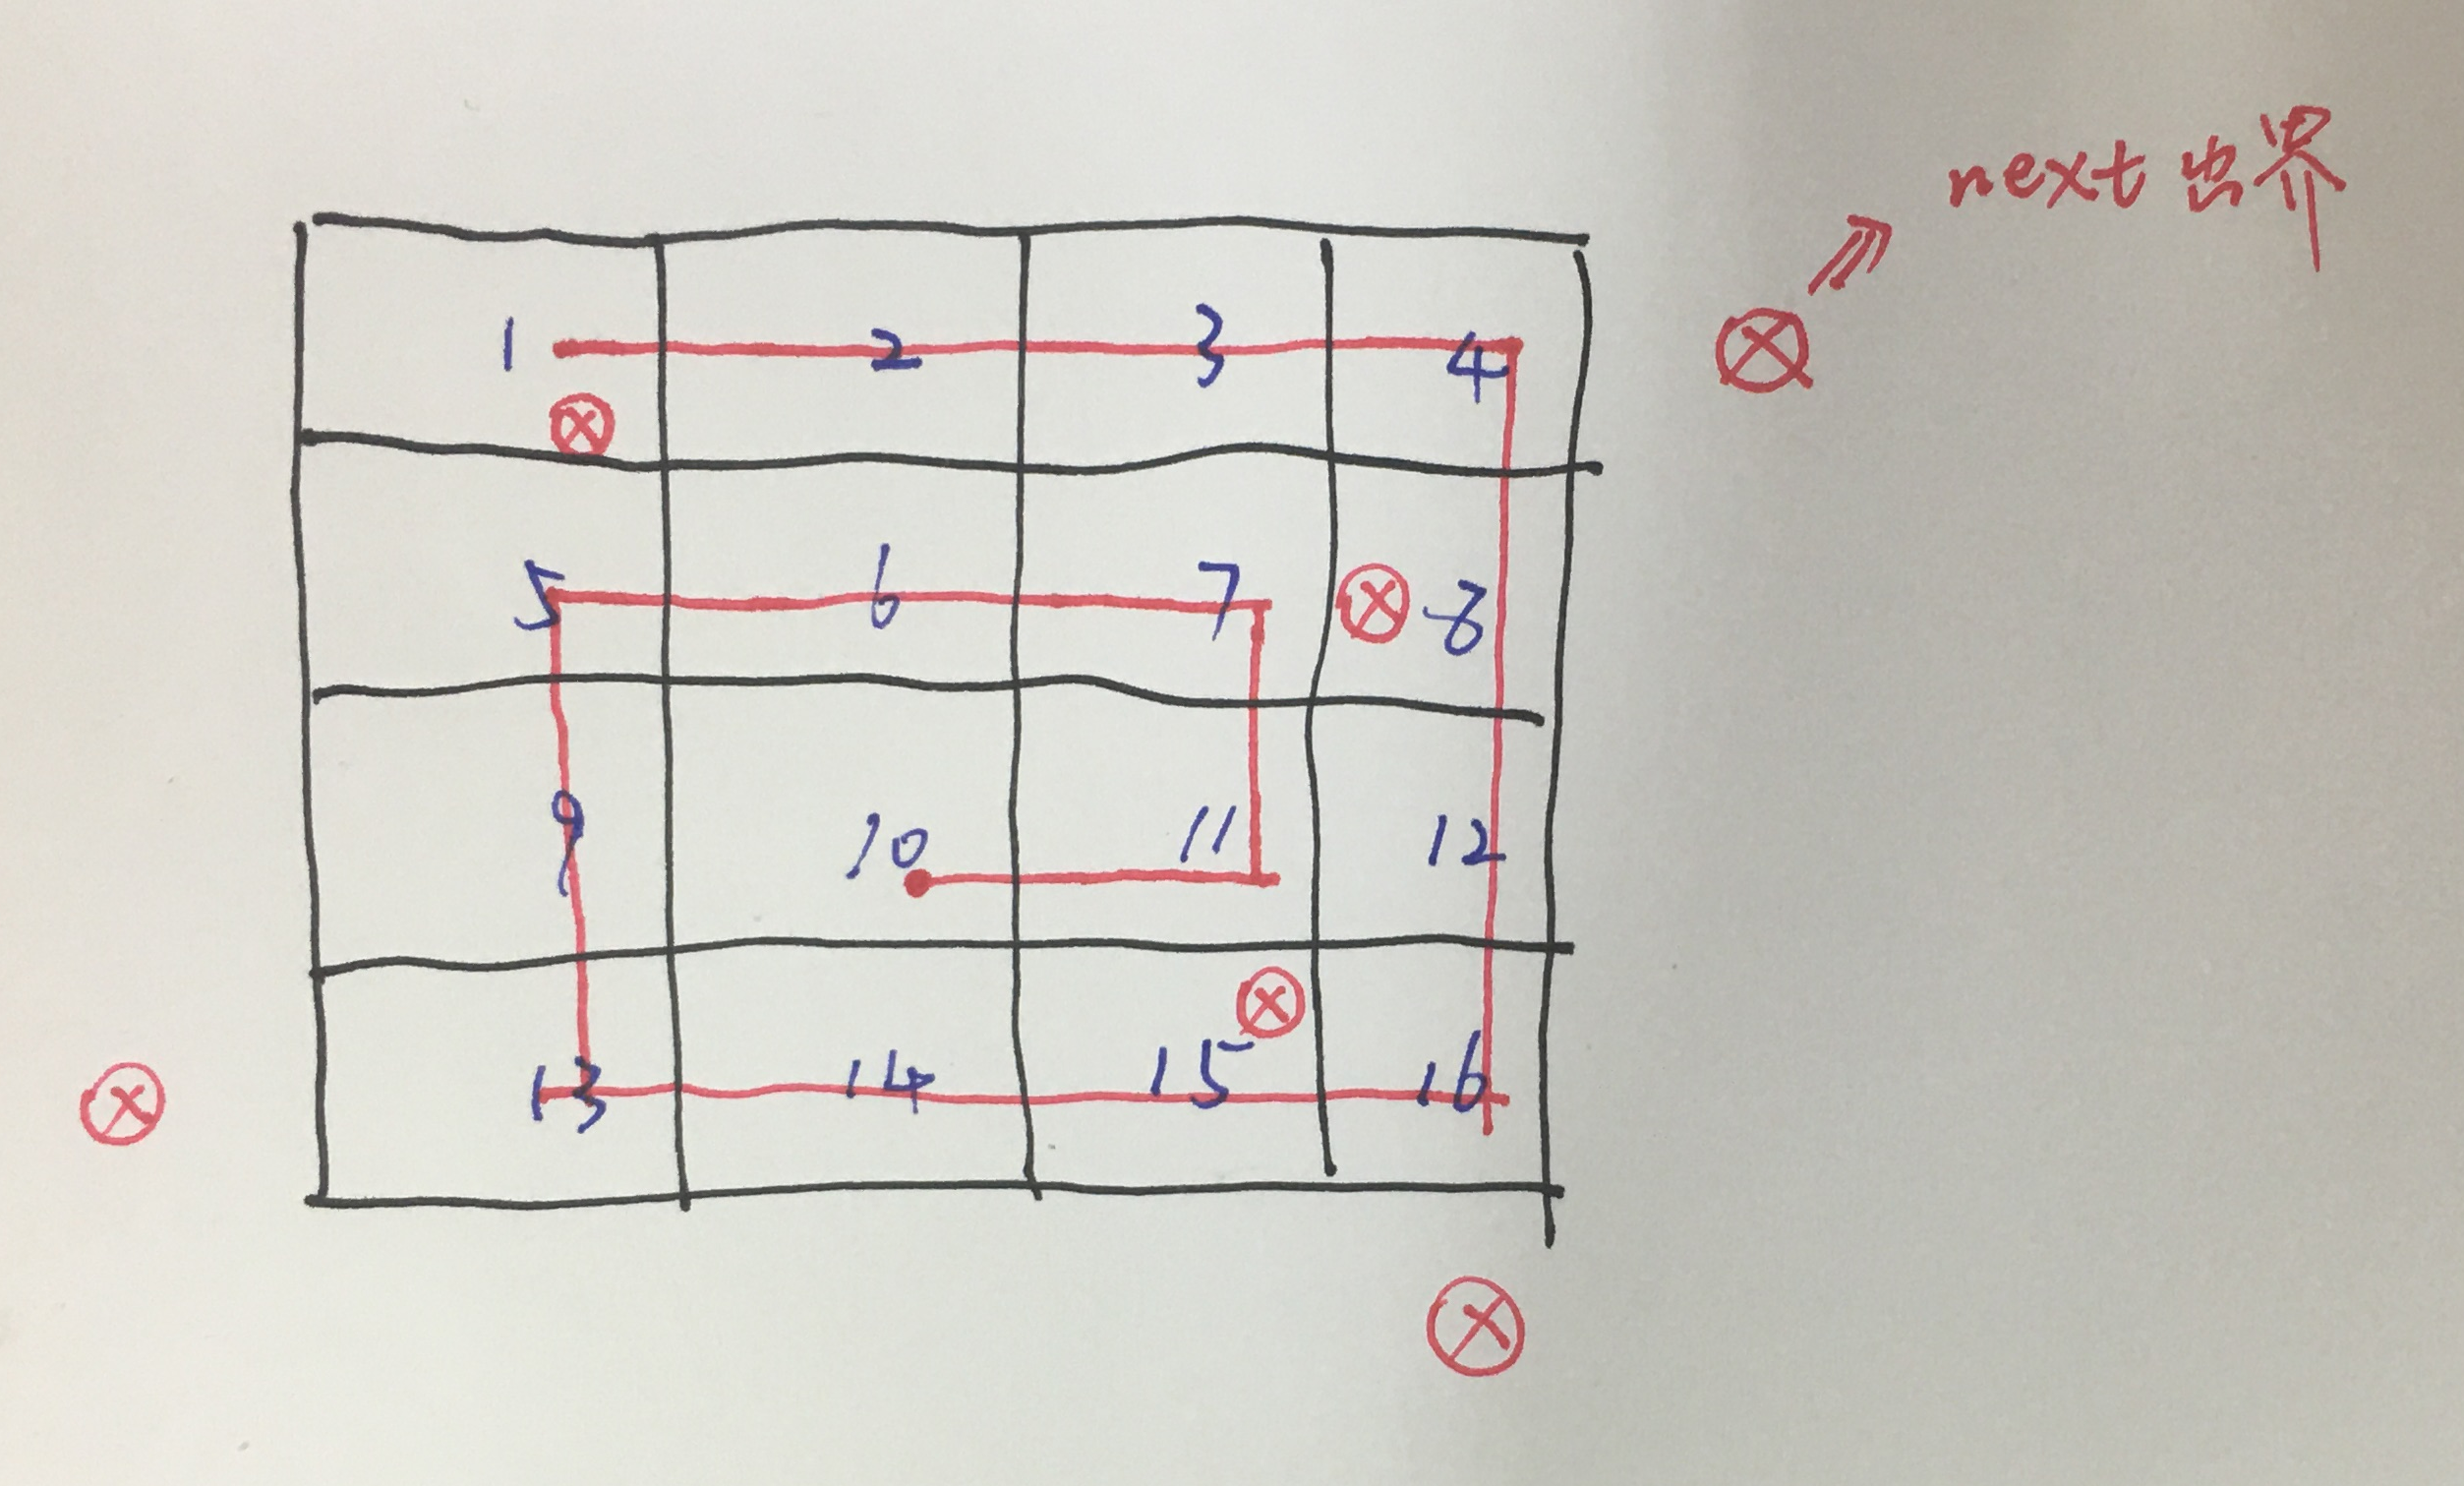 next 出界
1 2 3 4
5 6 7 8
9 10 11 12
13 14 15 16